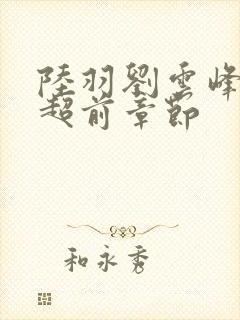 陸羽劉雲峰
超前章節
和永秀